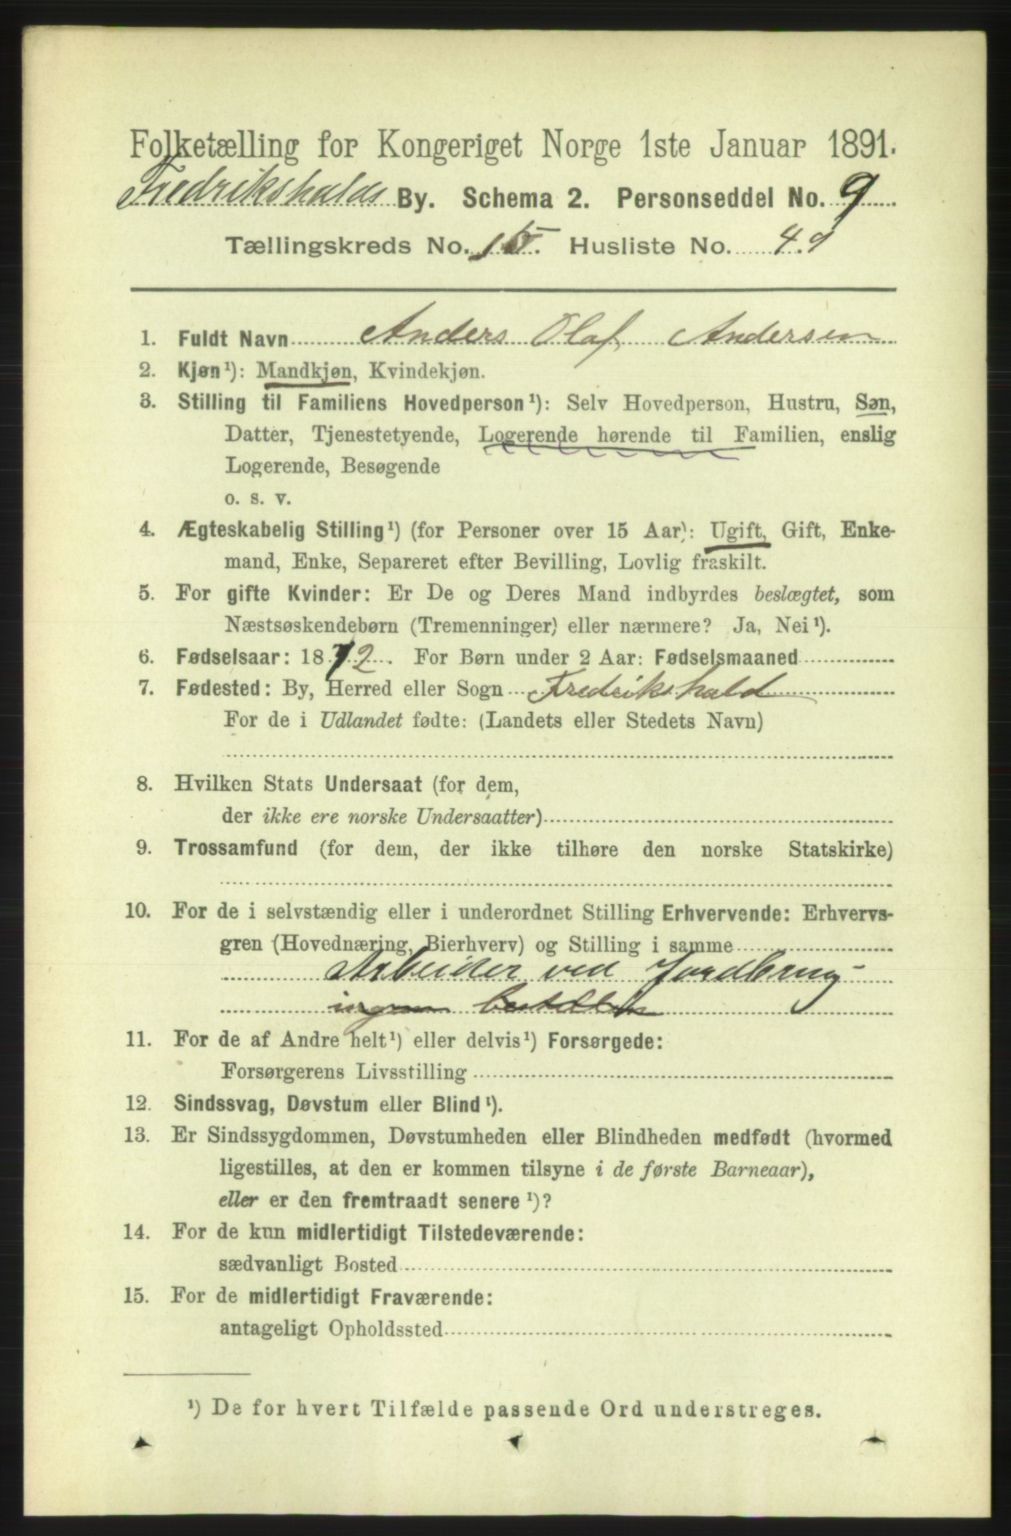 Folketælling for Kongeriget Norge 1ste Januar 1891.
Fredrikshalds By. Schema 2. Personseddel No. 9
Tællingskreds No. 15. Husliste No. 49
1. Fuldt Navn Anders Olaf Andersen
2. Kjøn¹): Mandkjøn, Kvindekjøn.
3. Stilling til Familiens Hovedperson¹): Selv Hovedperson, Hustru, Søn,
Datter, Tjenestetyende, Logerende hørende til Familien, enslig
Logerende, Besøgende
o. s. v.
4. Ægteskabelig Stilling¹) (for Personer over 15 Aar): Ugift, Gift, Enke-
mand, Enke, Separeret efter Bevilling, Lovlig fraskilt.
5. For gifte Kvinder: Er De og Deres Mand indbyrdes beslægtet, som
Næstsøskendebørn (Tremenninger) eller nærmere? Ja, Nei¹).
6. Fødselsaar: 1872. For Børn under 2 Aar: Fødselsmaaned
7. Fødested: By, Herred eller Sogn Fredrikshald
For de i Udlandet fødte: (Landets eller Stedets Navn)
8. Hvilken Stats Undersaat (for dem,
der ikke ere norske Undersaatter)
9. Trossamfund (for dem, der ikke tilhøre den norske Statskirke)
10. For de i selvstændig eller i underordnet Stilling Erhvervende: Erhvervs-
gren (Hovednæring, Bierhverv) og Stilling i samme
Arbeider ved Jordbrug
ingen
11. For de af Andre helt¹) eller delvis¹) Forsørgede:
Forsørgerens Livsstilling
12. Sindssvag, Døvstum eller Blind¹).
13. Er Sindssygdommen, Døvstumheden eller Blindheden medfødt (hvormed
ligestilles, at den er kommen tilsyne i de første Barneaar),
eller er den fremtraadt senere¹)?
14. For de kun midlertidigt Tilstedeværende:
sædvanligt Bosted
15. For de midlertidigt Fraværende:
antageligt Opholdssted
¹) De for hvert Tilfælde passende Ord understreges.